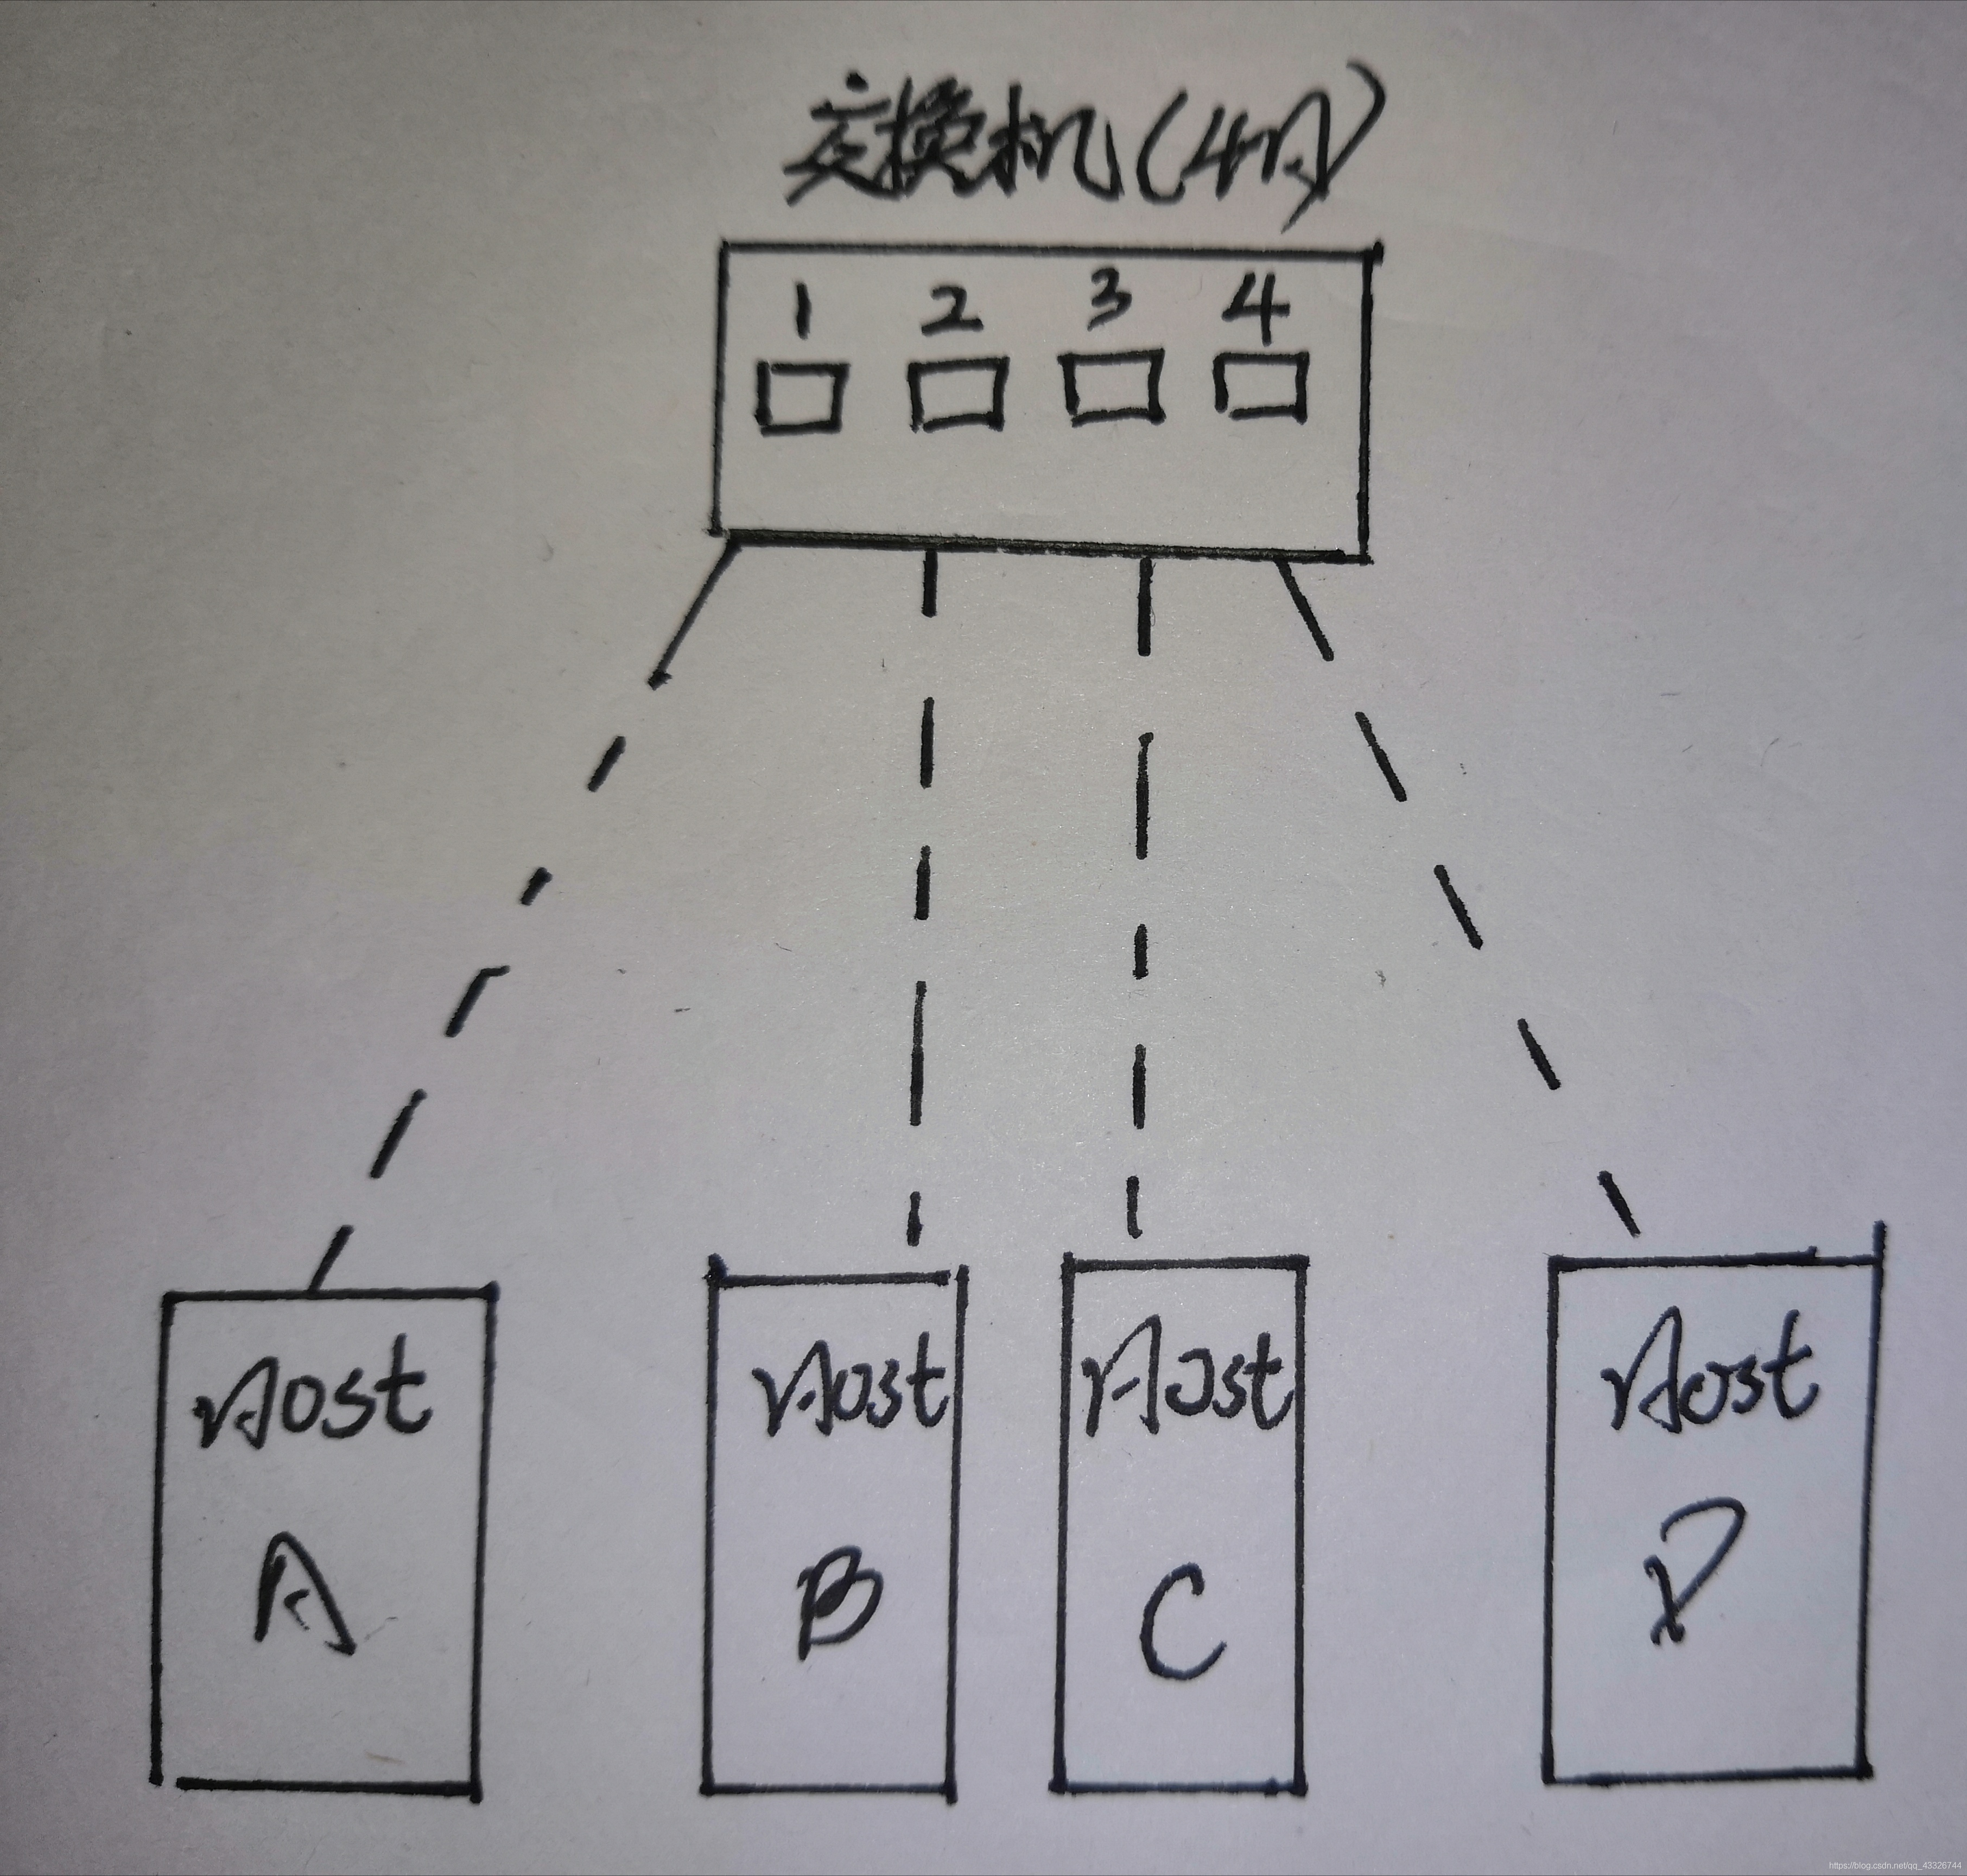 交换机(4口)
1 2 3 4
Host Host Host Host
A B C D
https://blog.csdn.net/qq_43326744